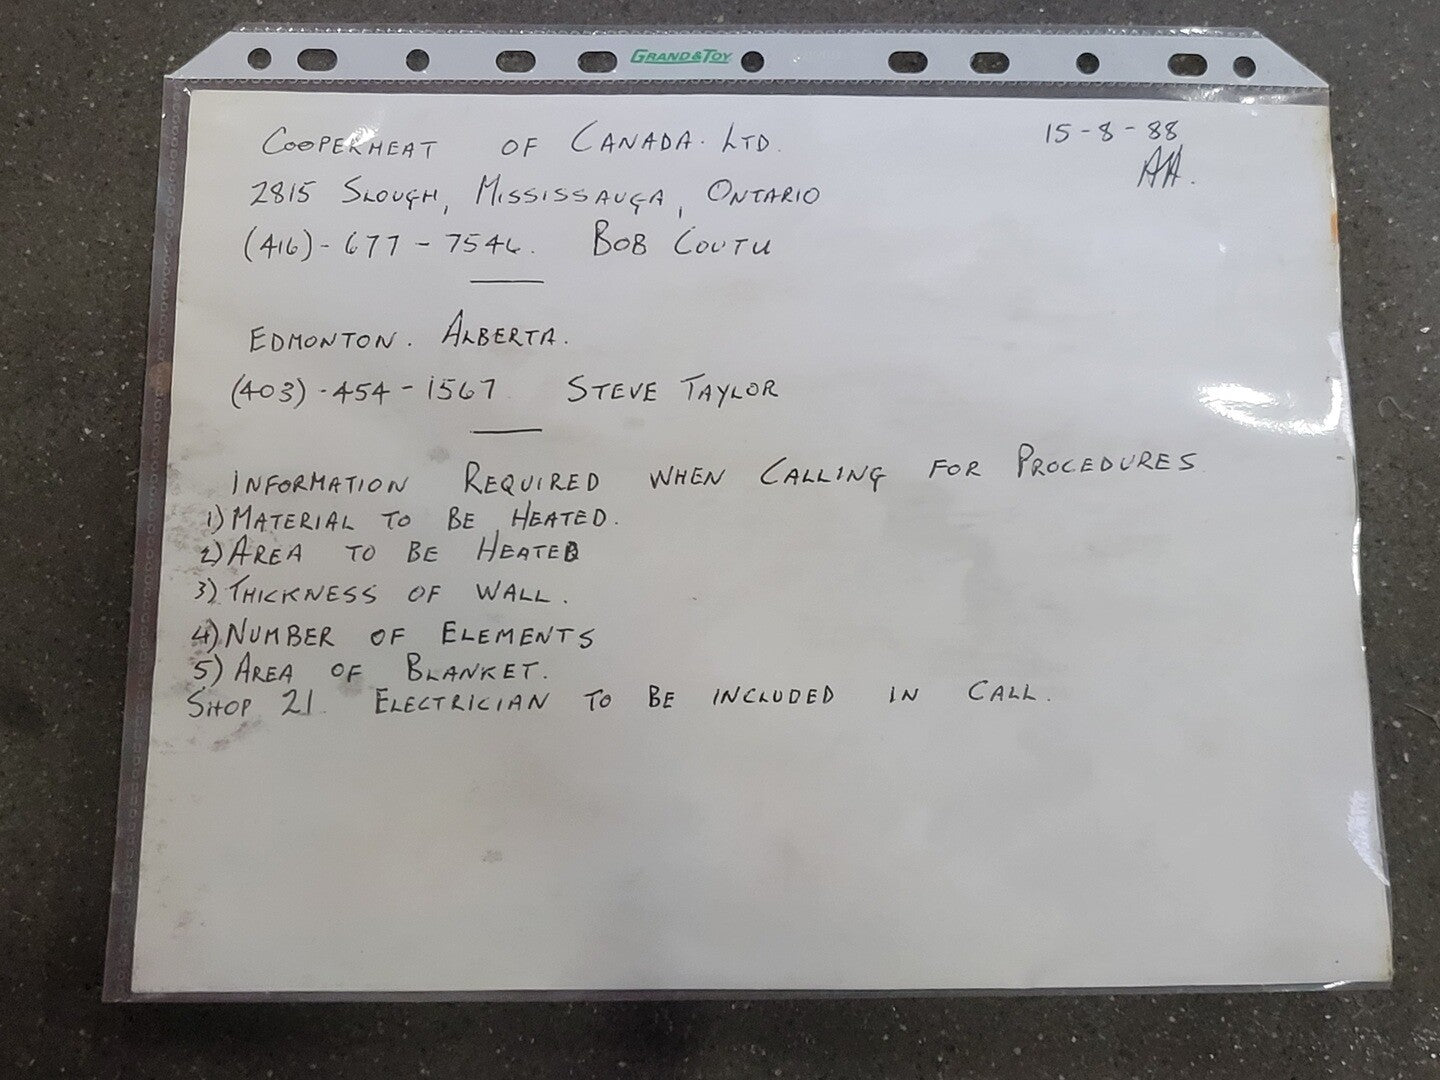 GRAND&TOY
COOPERHEAT OF CANADA. LTD. 15-8-88
AA.
2815 SLOUGH, MISSISSAUGA, ONTARIO
(416)-677-7546. BOB COUTU
EDMONTON. ALBERTA.
(403)-454-1567 STEVE TAYLOR
INFORMATION REQUIRED WHEN CALLING FOR PROCEDURES
1) MATERIAL TO BE HEATED.
2) AREA TO BE HEATED
3) THICKNESS OF WALL.
4) NUMBER OF ELEMENTS
5) AREA OF BLANKET.
SHOP 21. ELECTRICIAN TO BE INCLUDED IN CALL.